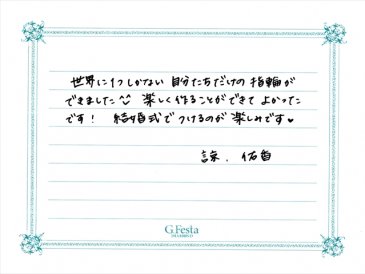 世界に1つしかない 自分たちだけの指輪が
できました 楽しく作ることができて よかった
です! 結婚式でつけるのが 楽しみです♥
諒. 佑香
G.Festa